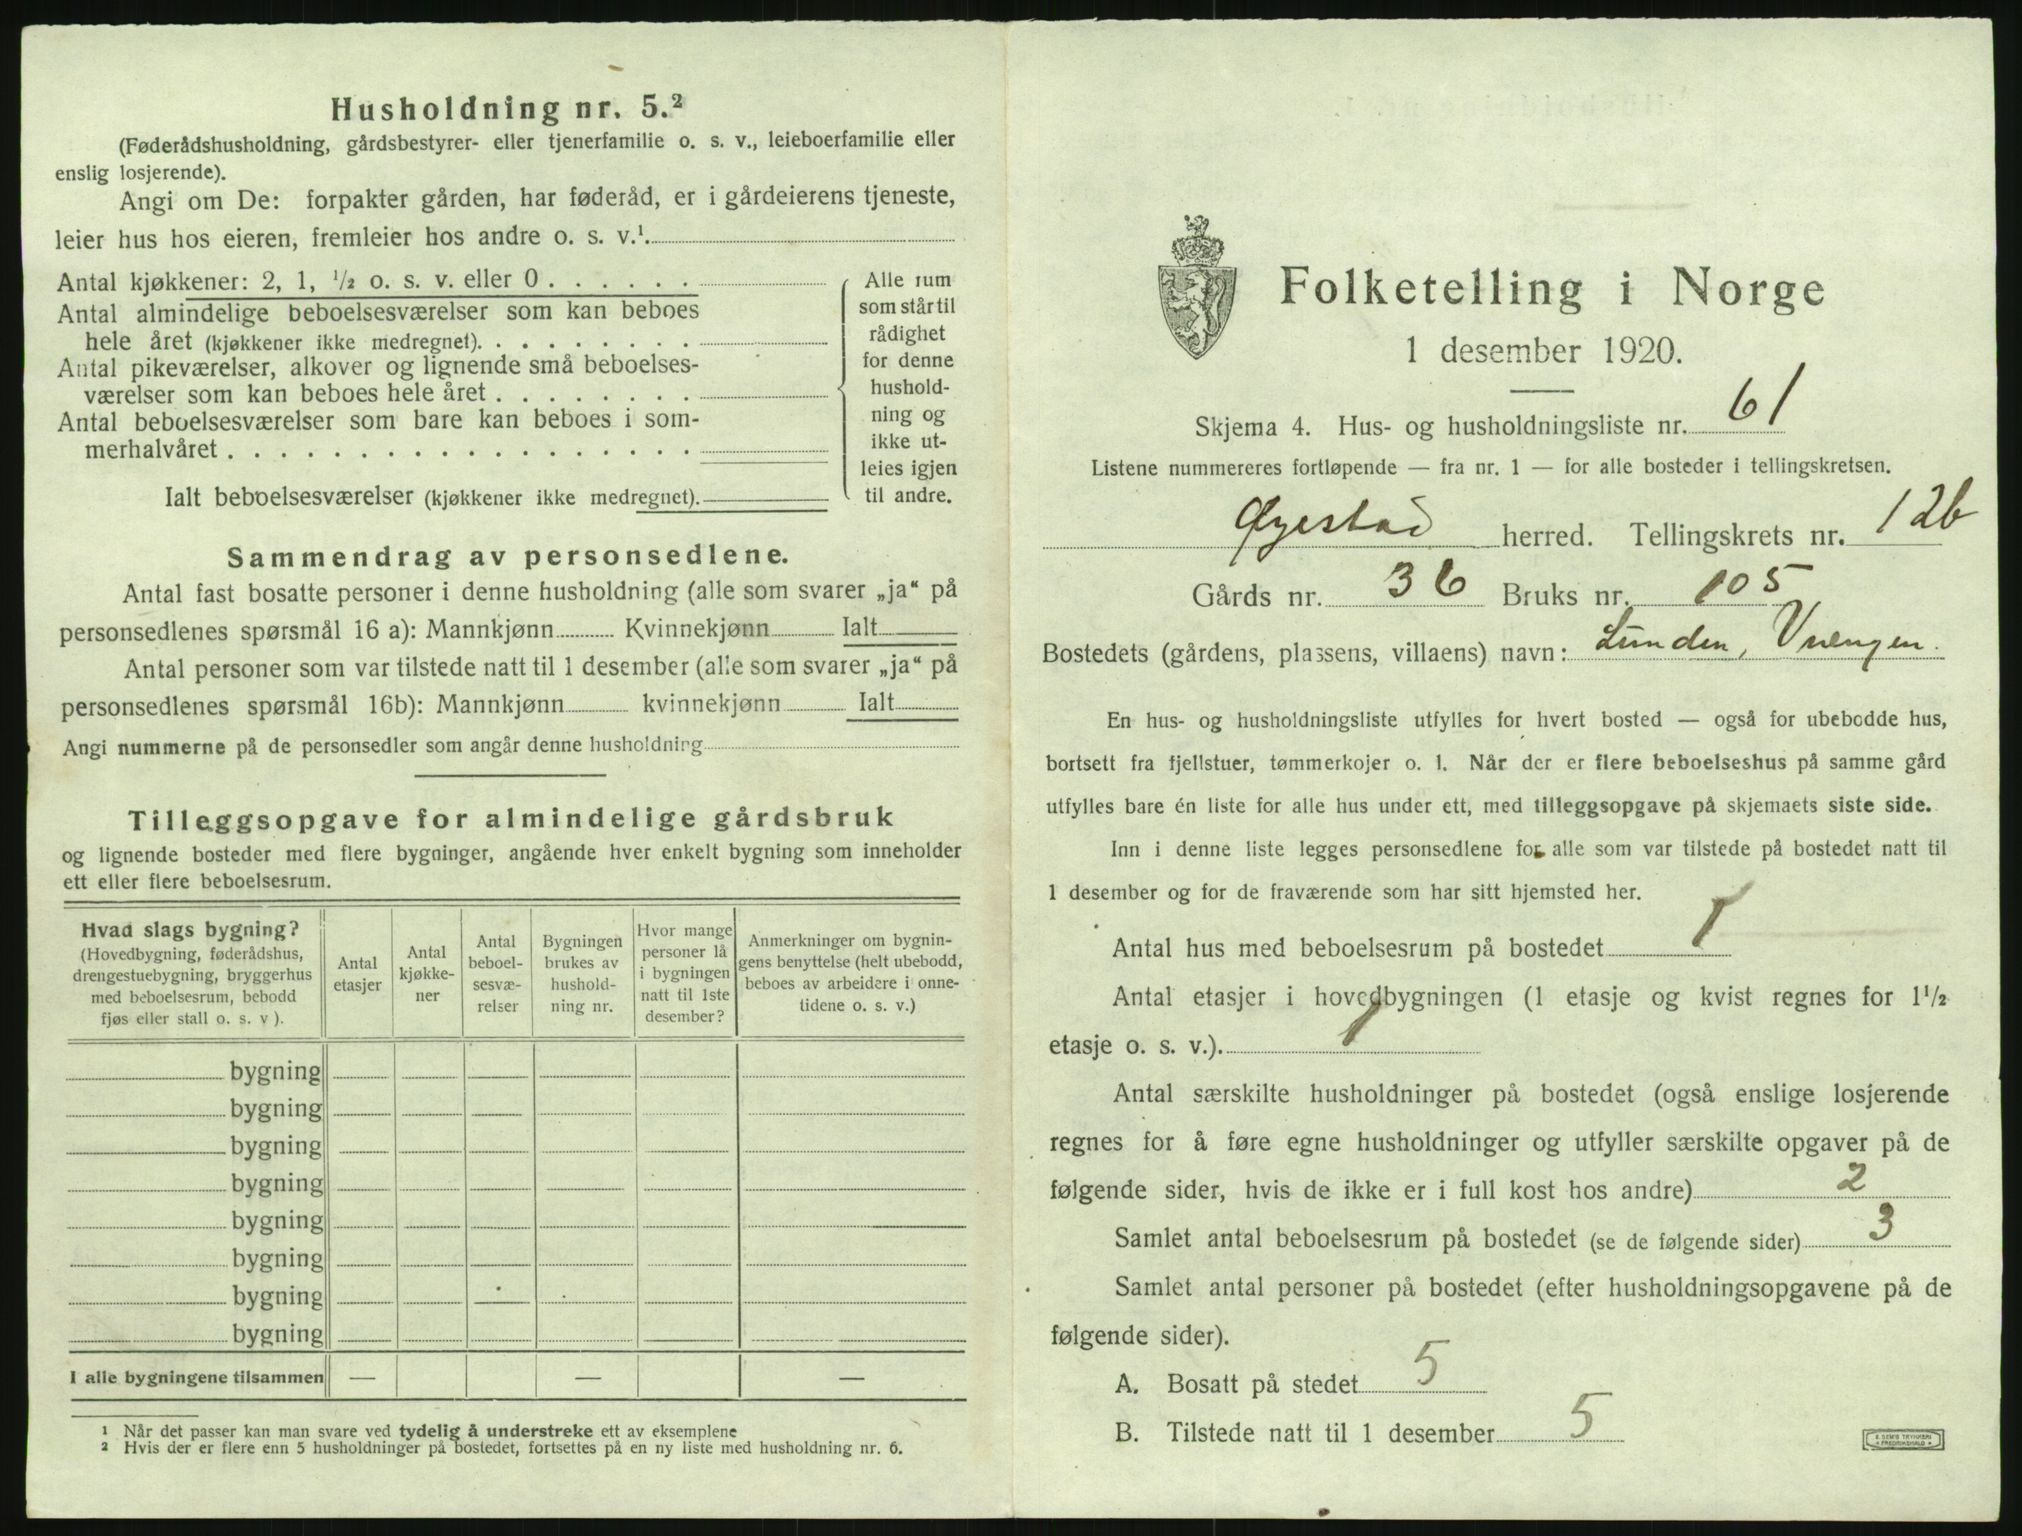 Husholdning nr. 5.²
(Føderådshusholdning, gårdsbestyrer- eller tjenerfamilie o. s. v., leieboerfamilie eller
enslig losjerende).
Angi om De: forpakter gården, har føderåd, er i gårdeierens tjeneste,
leier hus hos eieren, fremleier hos andre o. s. v.¹.
Antal kjøkkener: 2, 1, ½ o. s. v. eller 0 . . . . . .
Antal almindelige beboelsesværelser som kan beboes
hele året (kjøkkener ikke medregnet). . . . . . . . .
Antal pikeværelser, alkover og lignende små beboelses-
værelser som kan beboes hele året . . . . . . . .
Antal beboelsesværelser som bare kan beboes i som-
merhalvåret . . . . . . . . . . . . . . . . . .
Ialt beboelsesværelser (kjøkkener ikke medregnet).
Alle rum
som står til
rådighet
for denne
hushold-
ning og
ikke ut-
leies igjen
til andre.
Sammendrag av personsedlene.
Antal fast bosatte personer i denne husholdning (alle som svarer „ja“ på
personsedlenes spørsmål 16 a): Mannkjønn Kvinnekjønn Ialt
Antal personer som var tilstede natt til 1 desember (alle som svarer „ja“ på
personsedlenes spørsmål 16b): Mannkjønn kvinnekjønn Ialt
Angi nummerne på de personsedler som angår denne husholdning
Tilleggsopgave for almindelige gårdsbruk
og lignende bosteder med flere bygninger, angående hver enkelt bygning som inneholder
ett eller flere beboelsesrum.
Hvad slags bygning?
(Hovedbygning, føderådshus,
drengestuebygning, bryggerhus
med beboelsesrum, bebodd
fjøs eller stall o. s. v ).
Antal
etasjer
Antal
kjøkke-
ner
Antal
beboel-
sesvæ-
relser
Bygningen
brukes av
hushold-
ning nr.
Hvor mange
personer lå
i bygningen
natt til 1ste
desember?
Anmerkninger om bygnin-
gens benyttelse (helt ubebodd,
beboes av arbeidere i onne-
tidene o. s. v.)
bygning
bygning
bygning
bygning
bygning
bygning
bygning
bygning
I alle bygningene tilsammen — — —
¹ Når det passer kan man svare ved tydelig å understreke ett av eksemplene
² Hvis der er flere enn 5 husholdninger på bostedet, fortsettes på en ny liste med husholdning nr. 6.
Folketelling i Norge
1 desember 1920.
Skjema 4. Hus- og husholdningsliste nr. 61
Listene nummereres fortløpende — fra nr. 1 — for alle bosteder i tellingskretsen.
Øyestad herred. Tellingskrets nr. 12b
Gårds nr. 36 Bruks nr. 105
Bostedets (gårdens, plassens, villaens) navn: Lunden, Vrengen.
En hus- og husholdningsliste utfylles for hvert bosted — også for ubebodde hus,
bortsett fra fjellstuer, tømmerkojer o. l. Når der er flere beboelseshus på samme gård
utfylles bare én liste for alle hus under ett, med tilleggsopgave på skjemaets siste side.
Inn i denne liste legges personsedlene for alle som var tilstede på bostedet natt til
1 desember og for de fraværende som har sitt hjemsted her.
Antal hus med beboelsesrum på bostedet 1
Antal etasjer i hovedbygningen (1 etasje og kvist regnes for 1½
etasje o. s. v.). 1
Antal særskilte husholdninger på bostedet (også enslige losjerende
regnes for å føre egne husholdninger og utfyller særskilte opgaver på de
følgende sider, hvis de ikke er i full kost hos andre) 2
Samlet antal beboelsesrum på bostedet (se de følgende sider) 3
Samlet antal personer på bostedet (efter husholdningsopgavene på de
følgende sider).
A. Bosatt på stedet 5
B. Tilstede natt til 1 desember 5
E. SEM'S TRYKKERI
FREDRIKSHALD